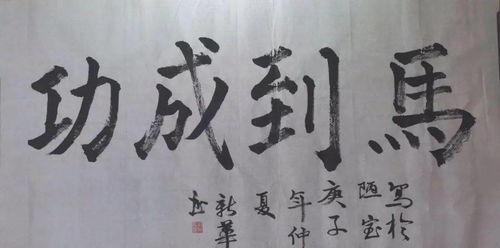 馬到成功
写於
陋室
庚子
年仲
夏
新華